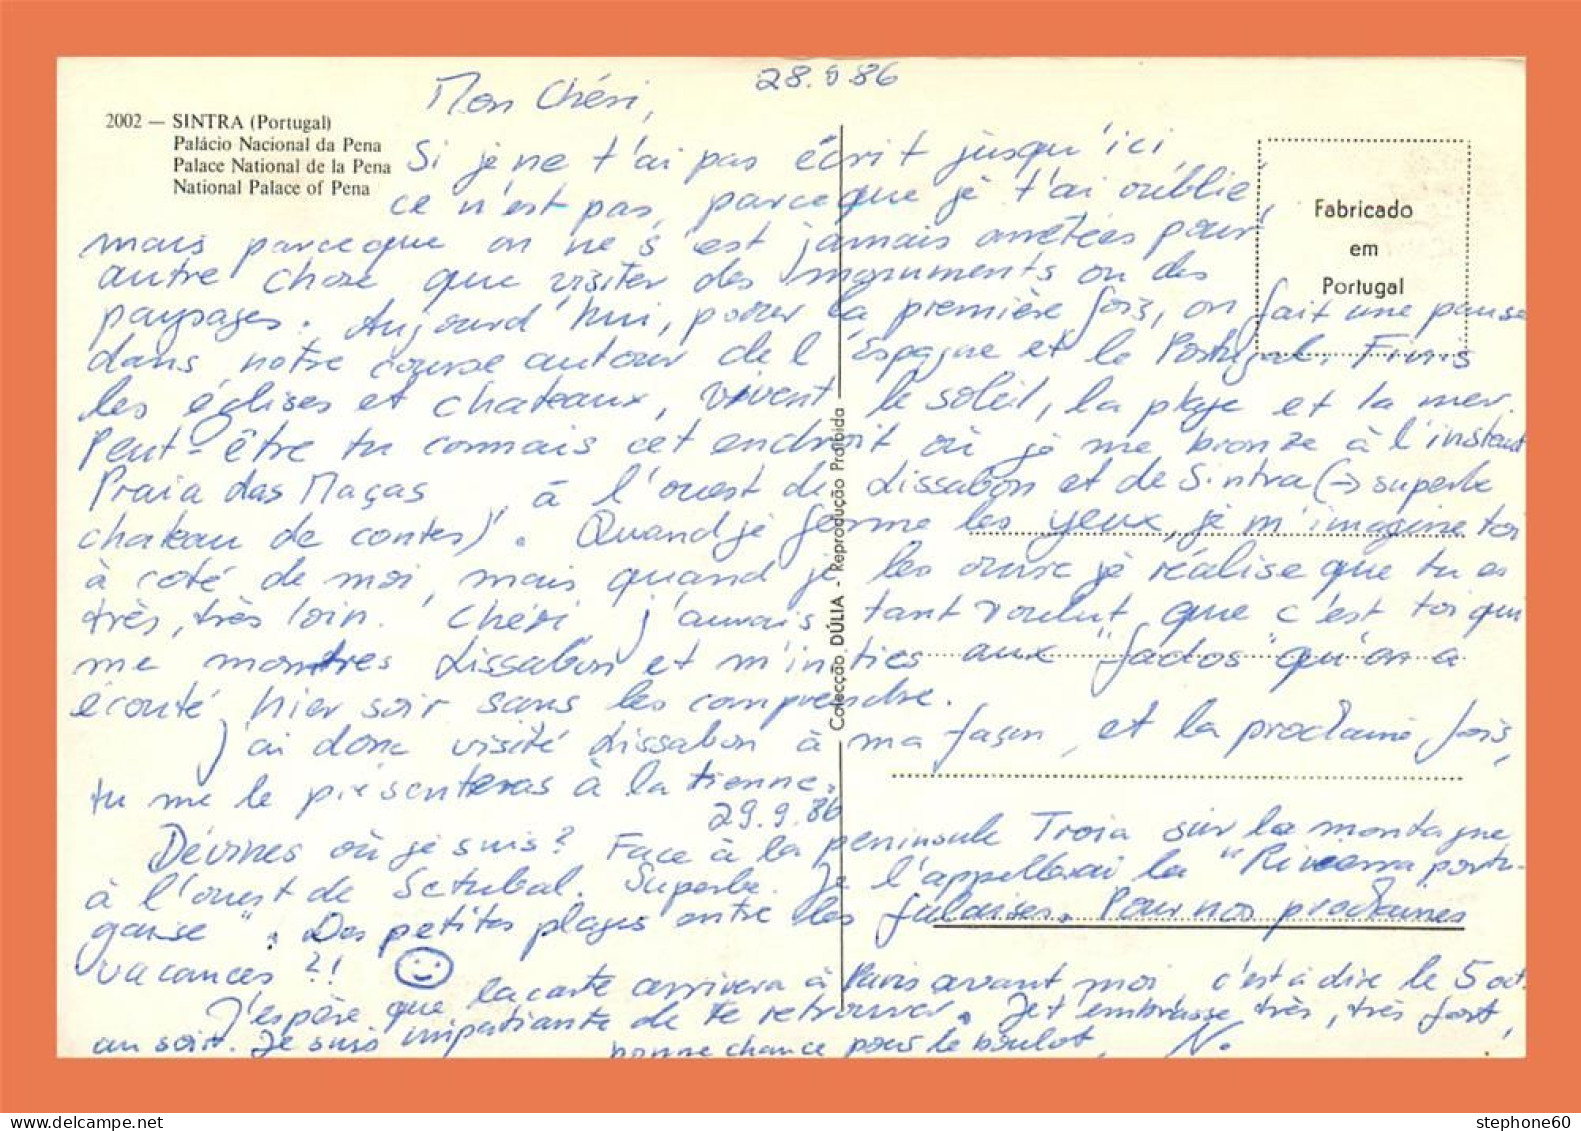 28.9.86
Mon Chéri,
2002 — SINTRA (Portugal)
Palácio Nacional da Pena
Palace National de la Pena
National Palace of Pena
Si je ne t'ai pas écrit jusqu'ici,
ce n'est pas, parceque je t'ai oublié,
mais parceque on ne s'est jamais arrêtées pour
autre chose que visiter des monuments ou des
paysages. Aujourd'hui, pour la première fois, on fait une pause
dans notre course autour de l'Espagne et le Portugal. Finis
les églises et chateaux, vivent le soleil, la plage et la mer.
Peut-être tu connais cet endroit où je me bronze à l'instant
Praia das Maças, à l'ouest de Lissabon et de Sintra (→ superbe
chateau de contes). Quand je ferme les yeux, je m'imagine toi
à coté de moi, mais quand je les ouvre je réalise que tu es
très, très loin. Chéri j'aurais tant voulut que c'est toi qui
me montres Lissabon et m'inities aux "fados" qu'on a
écouté hier soir sans les comprendre.
J'ai donc visité Lissabon à ma façon, et la prochaine fois,
tu me le présenteras à la tienne.
29.9.86
Dévines où je suis? Face à la peninsule Troia sur la montagne
à l'ouest de Setubal. Superbe. Je l'appellerai la "Rivierra portu-
gaise". Des petites plages entre les falaises. Pour nos prochaines
vacances?!
J'espère que la carte arrivera à Paris avant moi c'est à dire le 5 oct.
au soir. Je suis impatiante de te retrouver. Je t'embrasse très, très fort,
bonne chance pour le boulot, N.
Fabricado
em
Portugal
Colecção DÚLIA - Reprodução Proibida
stephone60